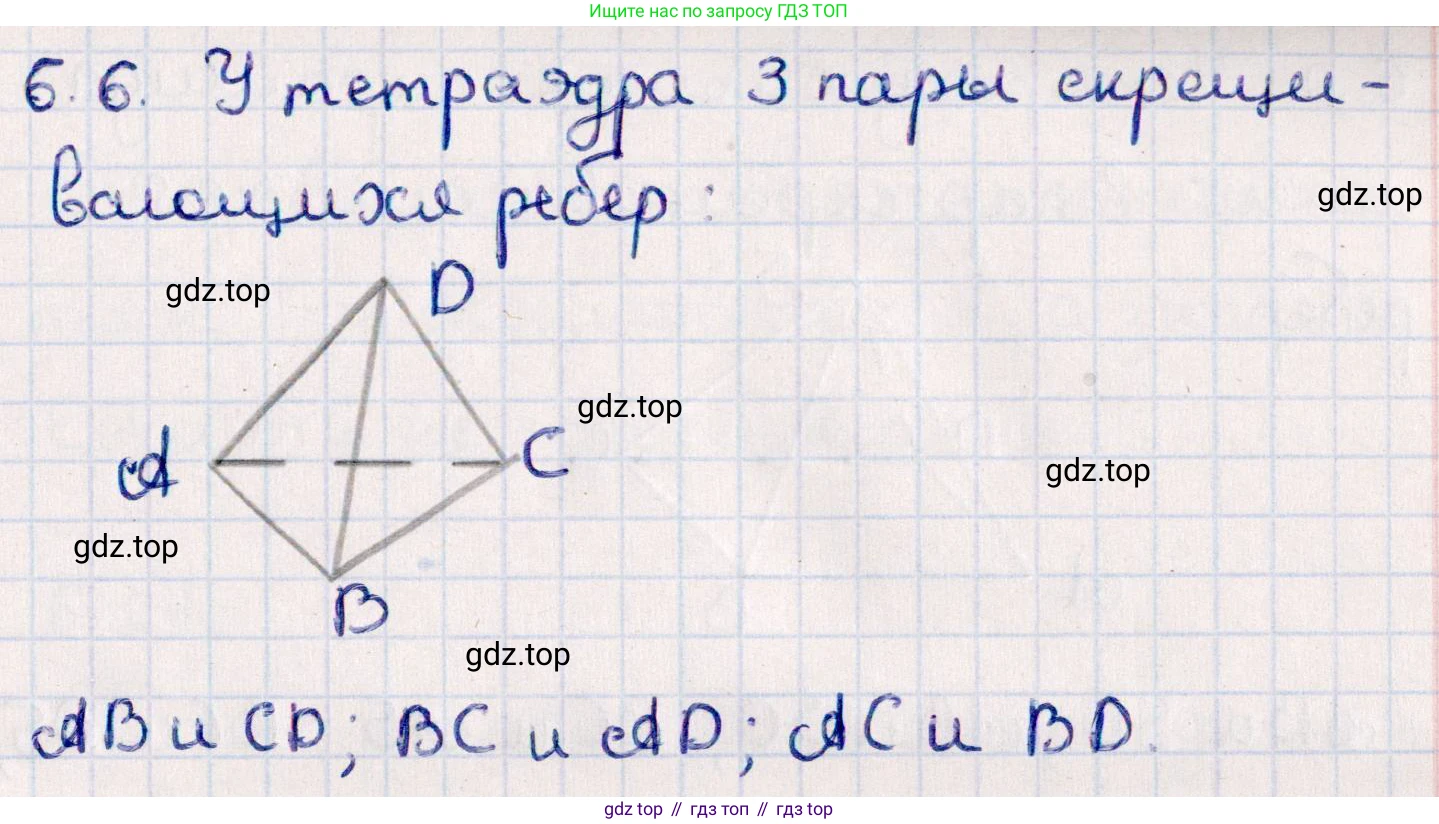 Ищите нас по запросу ГДЗ ТОП
6.6. У тетраэдра 3 пары скрещи-
вающихся ребер:
gdz.top
gdz.top
D
gdz.top
A
C
gdz.top
gdz.top
B
gdz.top
AB и CD; BC и AD; AC и BD.
gdz top // гдз топ // гдз top